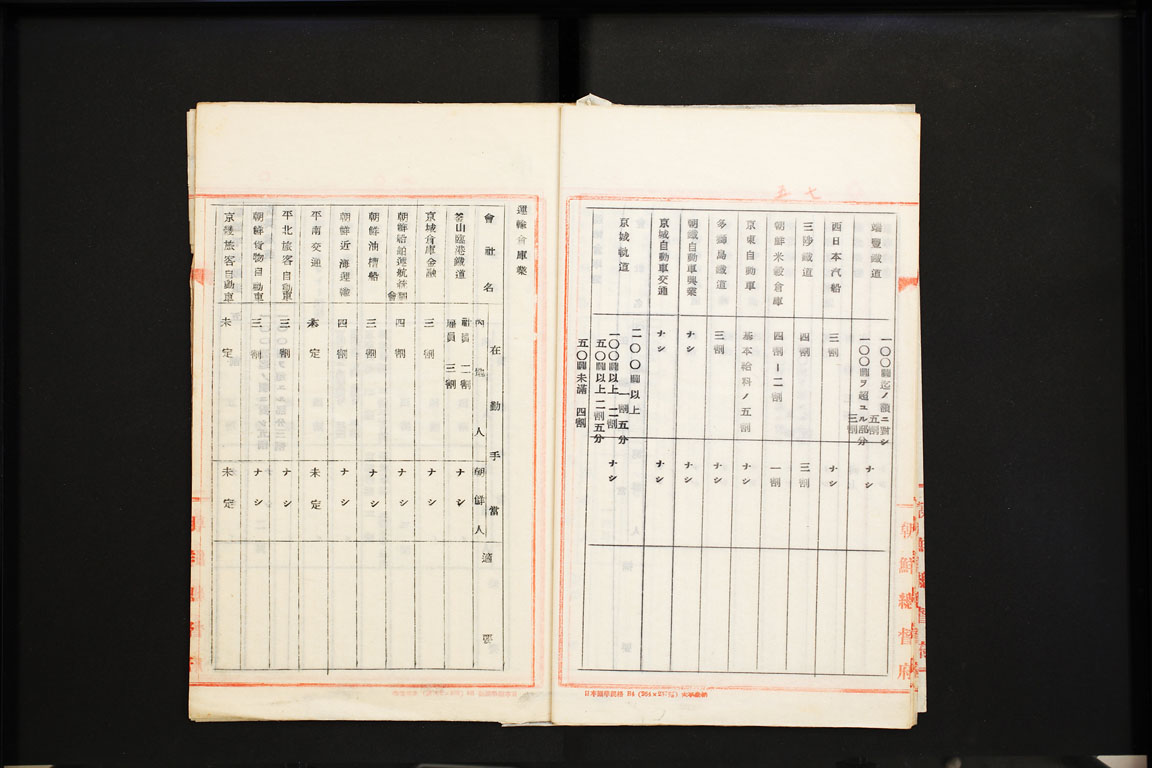 七五
端豐鐵道
一〇〇圓迄ノ額ニ對シ五割
一〇〇圓ヲ超ユル部分三割
ナシ
西日本汽船
三割
ナシ
三陟鐵道
四割
三割
朝鮮米穀倉庫
四割ー二割
一割
京東自動車
基本給料ノ五割
ナシ
多獅島鐵道
三割
ナシ
朝鐵自動車興業
ナシ
ナシ
京城自動車交通
ナシ
ナシ
京城軌道
二〇〇圓以上 一割五分
一〇〇圓以上 二割
五〇圓以上 二割五分
五〇圓未滿 四割
ナシ
朝鮮總督府
運輸倉庫業
會社名
在勤手當
內地人
朝鮮人
適要
釜山臨港鐵道
社員 二割
雇員 三割
ナシ
京城倉庫金融
三割
ナシ
朝鮮船舶運航統制會
四割
ナシ
朝鮮油槽船
三割
ナシ
朝鮮近海運輸
四割
ナシ
平南交通
未定
未定
平北旅客自動車
三割
ナシ
朝鮮貨物自動車
三割
ナシ
京畿旅客自動車
未定
未定